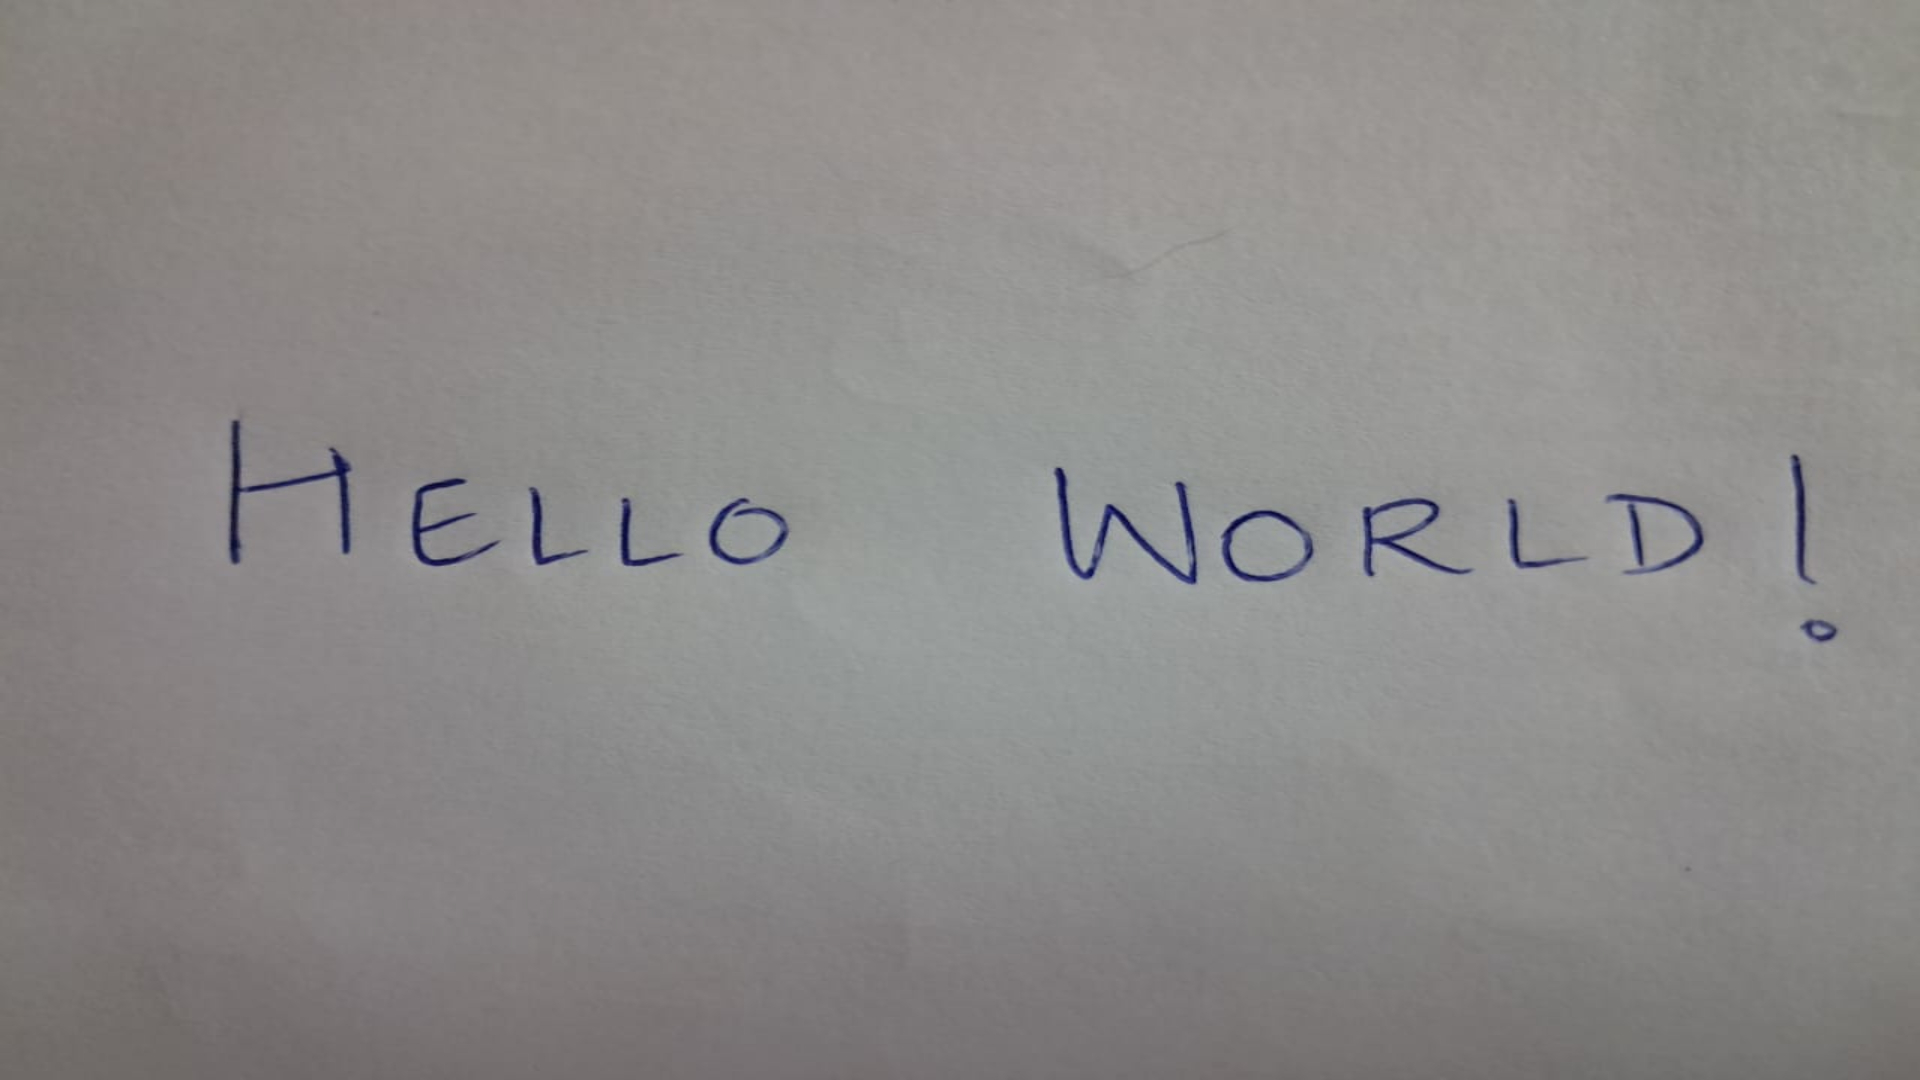 HELLO WORLD!